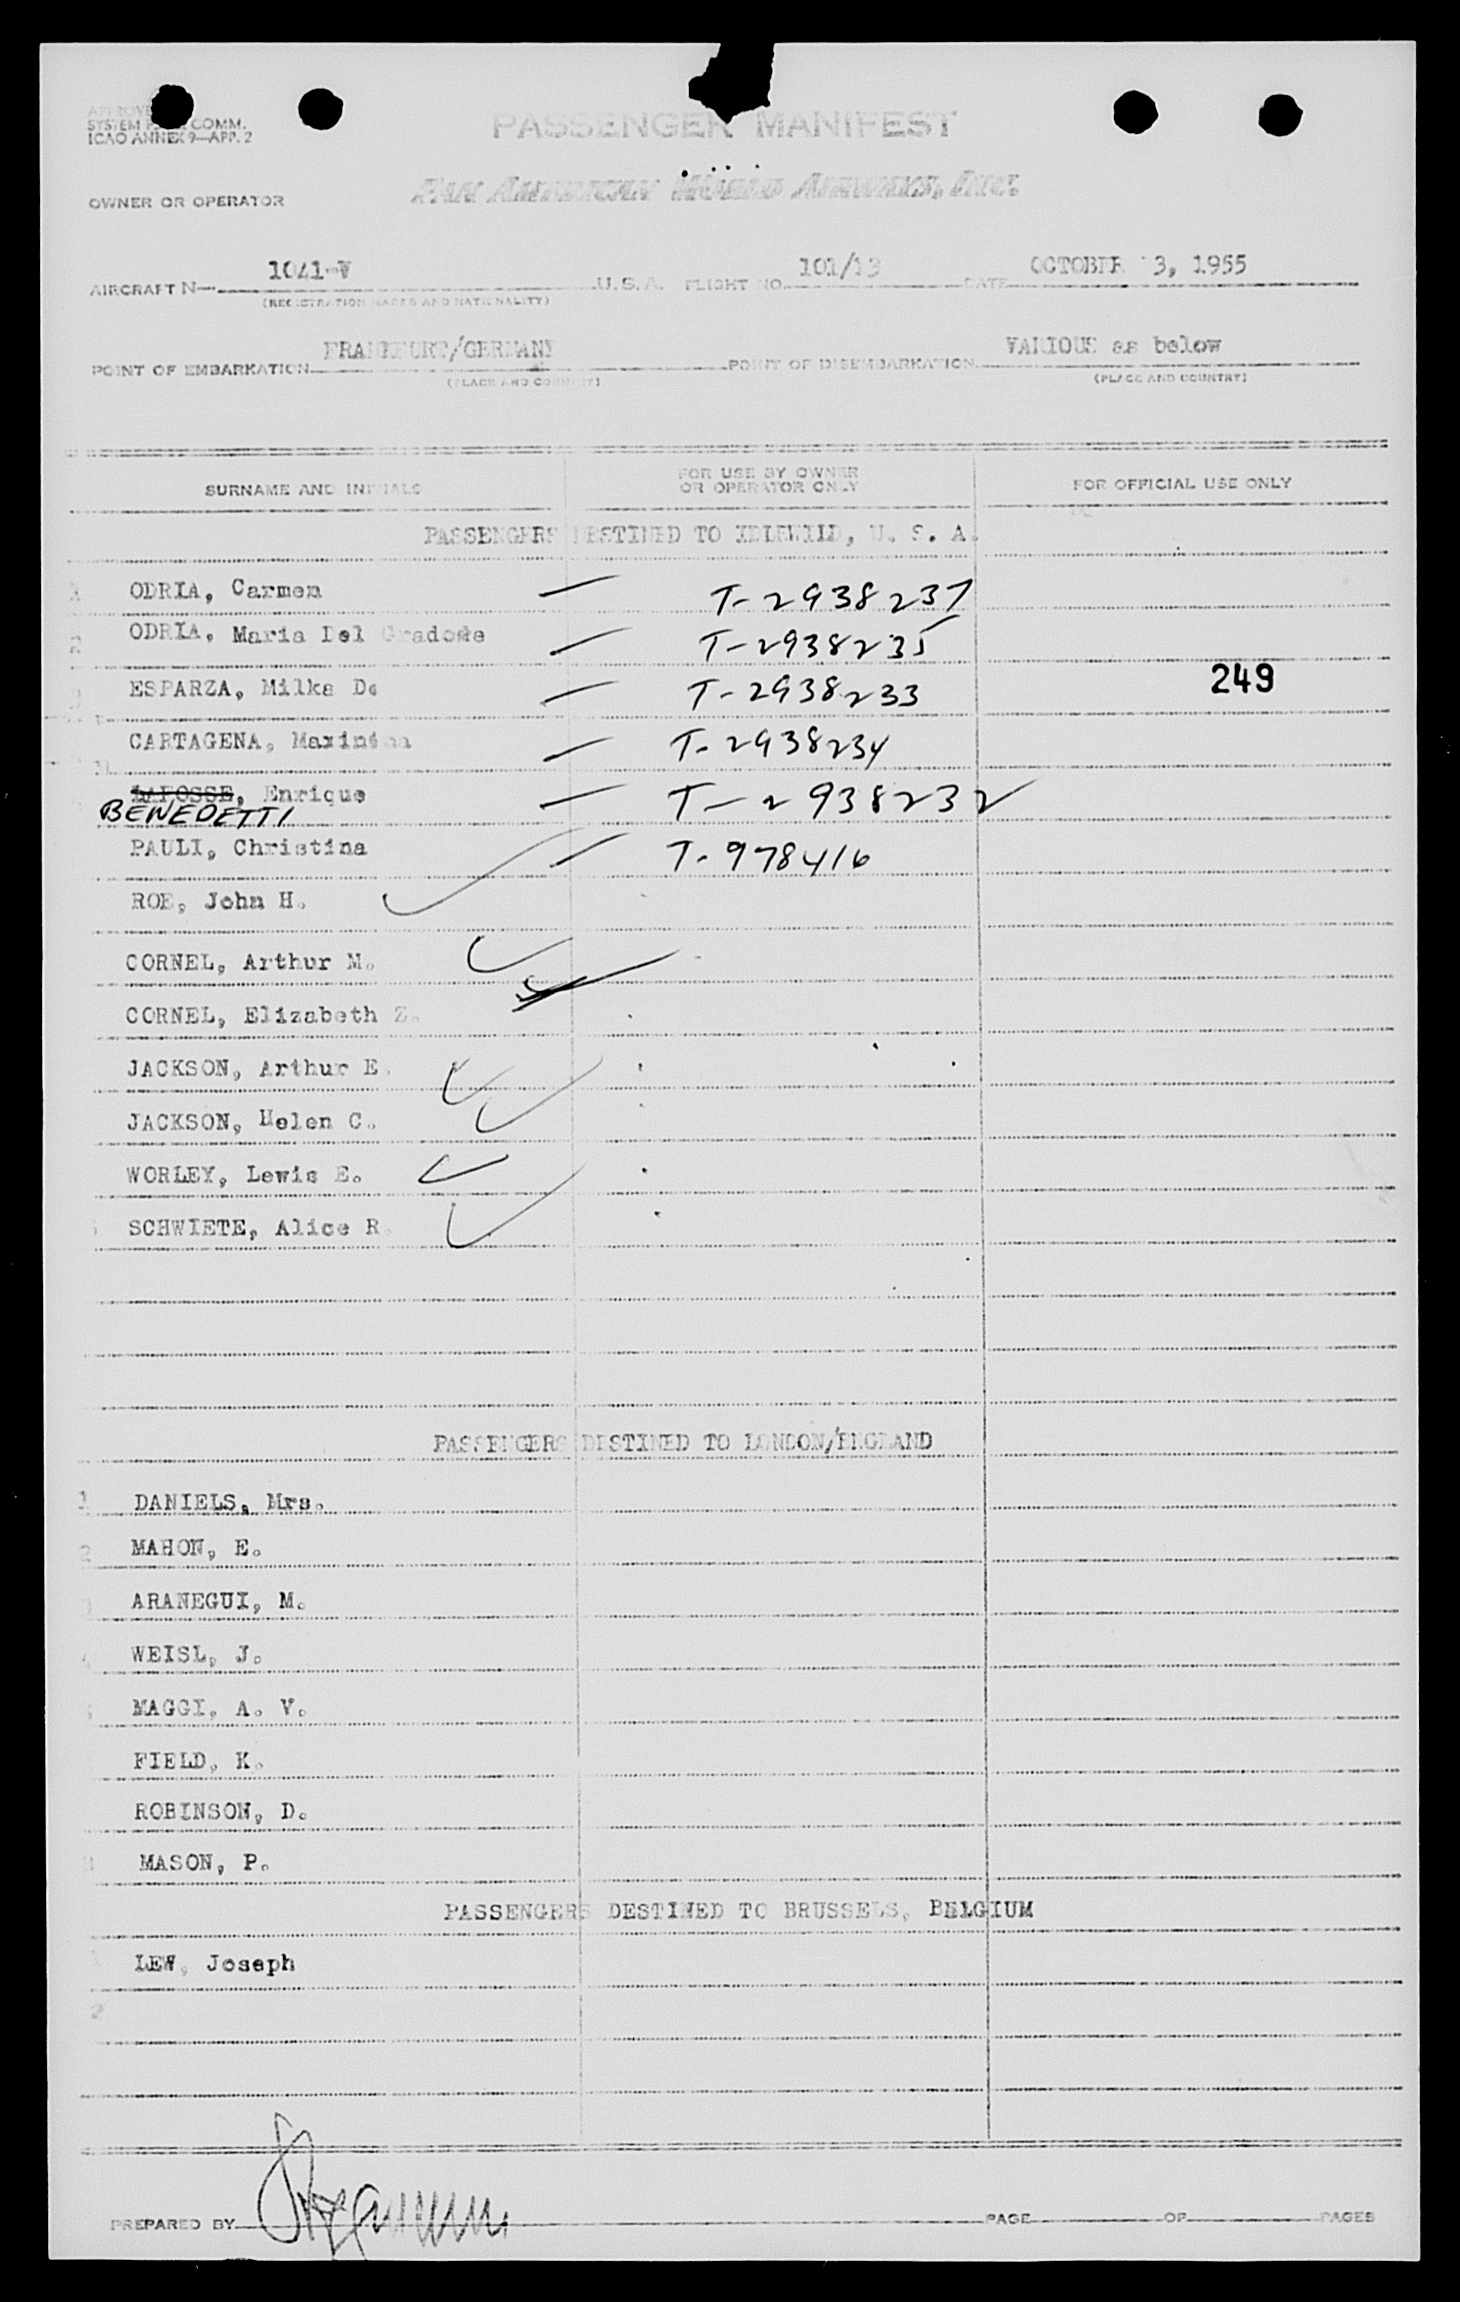 APPROVE
SYSTEM COMM.
ICAO ANNEX 9—APP. 2
PASSENGER MANIFEST
OWNER OR OPERATOR PAN AMERICAN WORLD AIRWAYS, INC.
AIRCRAFT N— 1041-V U.S.A. FLIGHT NO. 101/13 DATE OCTOBER 3, 1955
(REGISTRATION MARKS AND NATIONALITY)
POINT OF EMBARKATION FRANKFURT/GERMANY POINT OF DISEMBARKATION VARIOUS as below
(PLACE AND COUNTRY) (PLACE AND COUNTRY)
SURNAME AND INITIALS FOR USE BY OWNER OR OPERATOR ONLY FOR OFFICIAL USE ONLY
PASSENGERS DESTINED TO IDLEWILD, U. S. A.
1 ODRIA, Carmen — T-2938237
2 ODRIA, Maria Del — T-2938235
3 ESPARZA, Milka D. — T-2938233 249
CARTAGENA, Maximina — T-2938234
LAFOSSE, Enrique — T-2938232
BENEDETTI
PAULI, Christina — T-978416
ROE, John H.
CORNEL, Arthur M.
CORNEL, Elizabeth Z.
JACKSON, Arthur E.
JACKSON, Helen C.
WORLEY, Lewis E.
SCHWIETE, Alice R.
PASSENGERS DESTINED TO LONDON/ENGLAND
1 DANIELS, Mrs.
2 MAHON, E.
3 ARANEGUI, M.
4 WEISL, J.
MAGGI, A. V.
FIELD, K.
ROBINSON, D.
8 MASON, P.
PASSENGERS DESTINED TO BRUSSELS, BELGIUM
LEW, Joseph
2
PREPARED BY PAGE OF PAGES